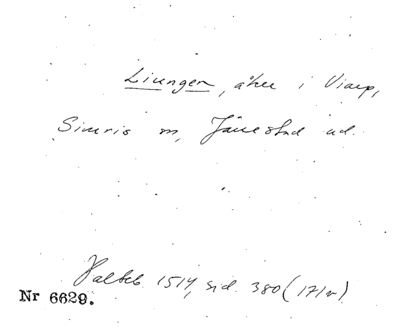 Liungen, åker i Viarp,
Simris sn, Järrestad hd.
Palteb 1514, sid. 380 (171v)
Nr 6629.